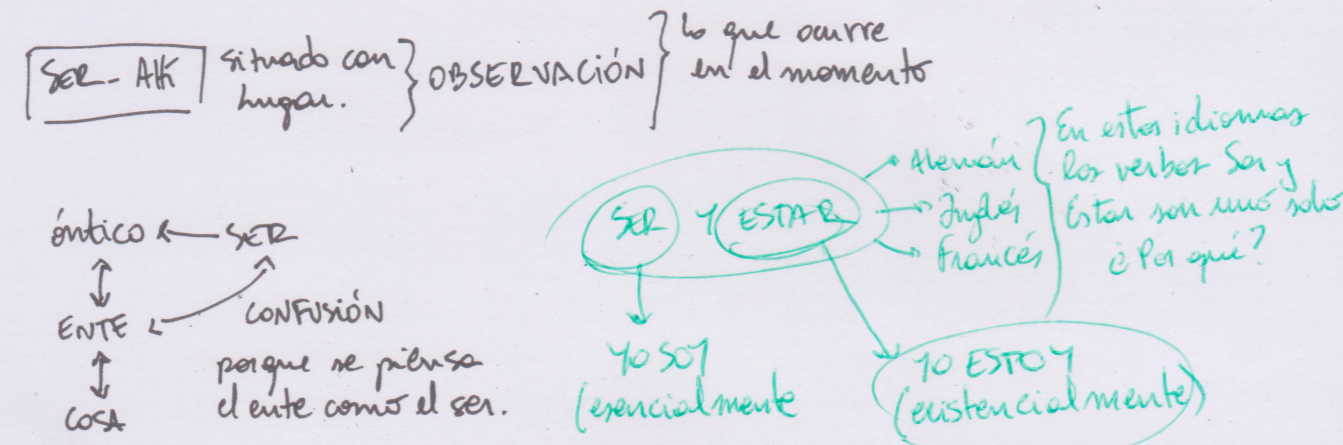 SER_
situado con
Lugar.
OBSERVACIÓN
Lo que ocurre
en el momento
óntico SER
ENTE
COSA
CONFUSIÓN
porque se piensa
el ente como el ser.
SER Y ESTAR
Alemán
Inglés
Francés
En estos idiomas
los verbos Ser y
Estar son uno solo
¿Por qué?
YO SOY
(esencialmente
YO ESTOY
(existencialmente)